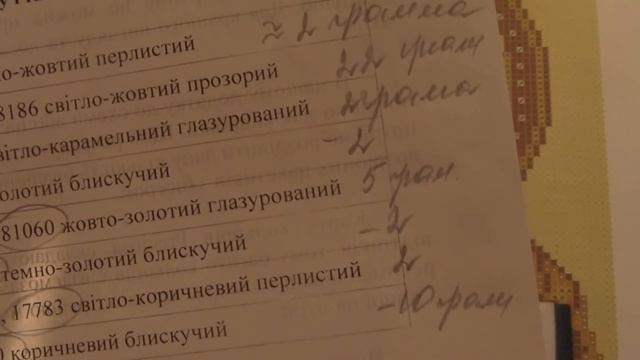 о-жовтий перлистий ≈ 2 грамма
8186 світло-жовтий прозорий 22 грам
вітло-карамельний глазурований 2грама
олотий блискучий - 2
81060 жовто-золотий глазурований 5 грам.
темно-золотий блискучий - 2
, 17783 світло-коричневий перлистий 2
0 коричневий блискучий - 10 грам